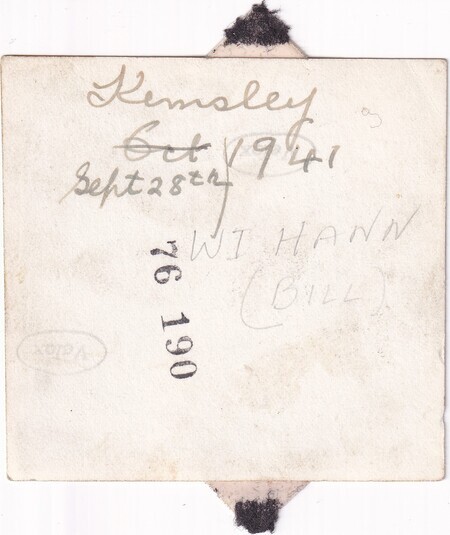 Kemsley
Oct 1941
Sept 28th
WI HANN
(BILL)
76 190
Velox